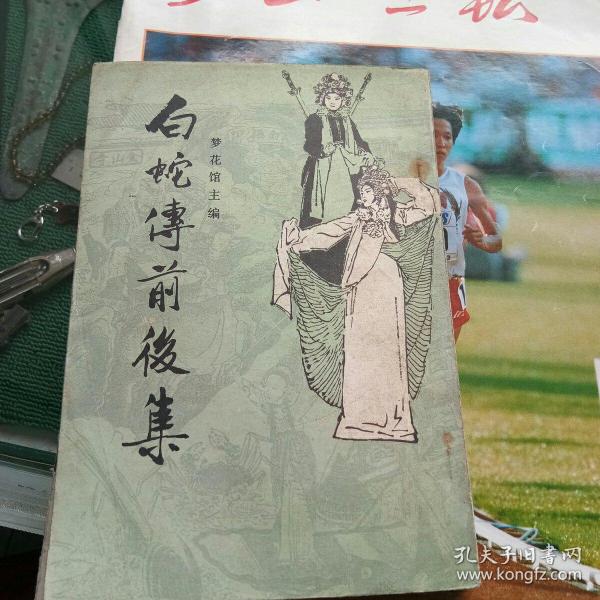 白蛇傳前後集
梦花馆主编
孔夫子旧书网
www.kongfz.com